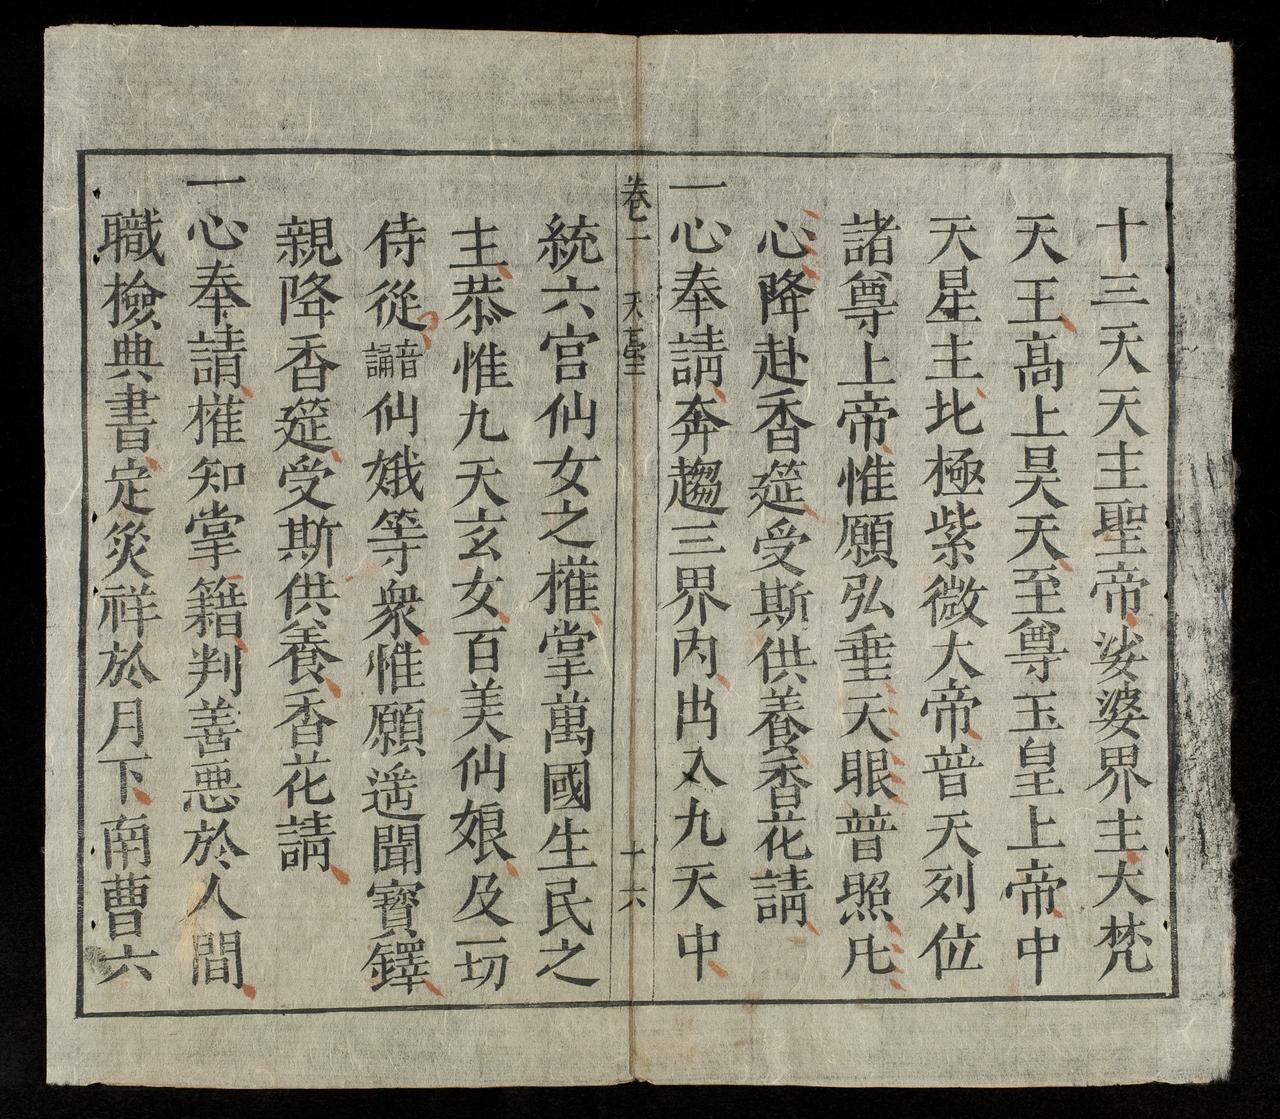 十三天天主聖帝娑婆界主大梵
天王高上昊天至尊玉皇上帝中
天星主北極紫微大帝普天列位
諸尊上帝惟願弘垂天眼普照凡
心降赴香筵受斯供養香花請
一心奉請奔趨三界內出入九天中
卷一 天廚 十六
統六宮仙女之權掌萬國生民之
主恭惟九天玄女百美仙娘及一切
侍從音誦仙娥等衆惟願遥聞寳鐸
親降香筵受斯供養香花請
一心奉請權知掌籍判善惡於人間
職檢典書定災祥於月下南曹六